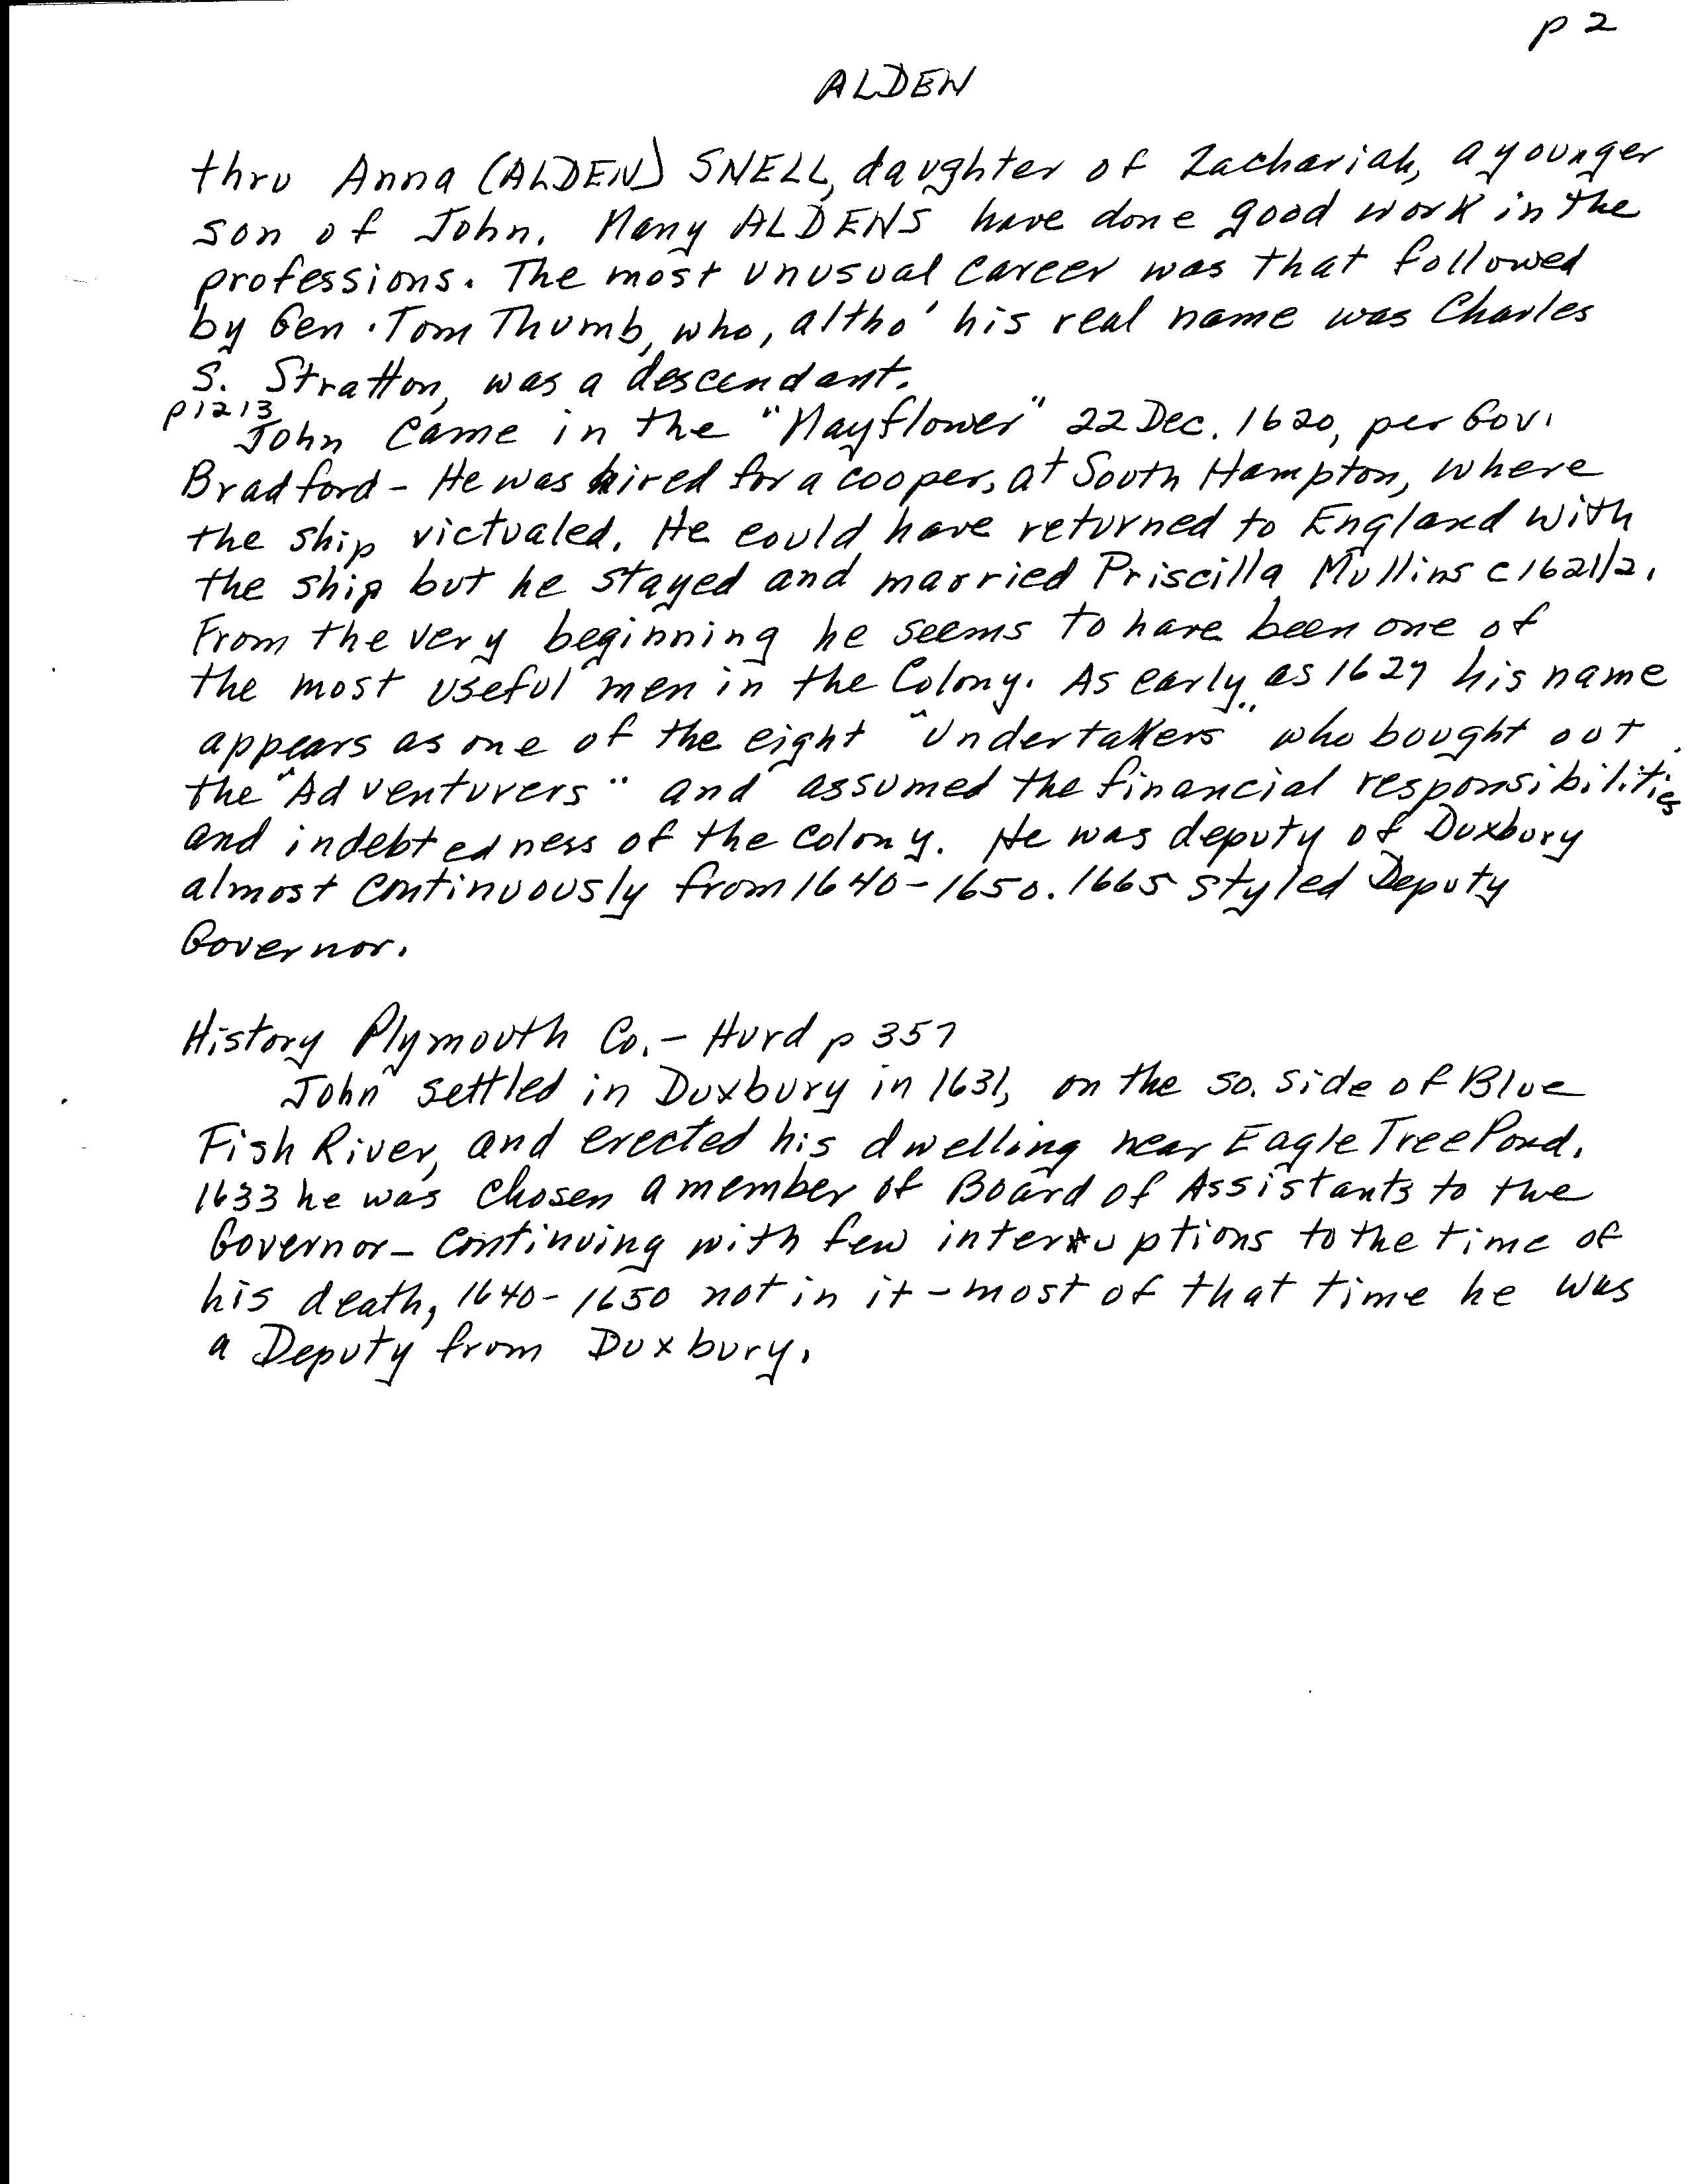 p 2
ALDEN
thru Anna (ALDEN) SNELL, daughter of Zachariah, a younger
son of John. Many ALDENS have done good work in the
professions. The most unusual career was that followed
by Gen. Tom Thumb, who, altho' his real name was Charles
S. Stratton, was a descendant.
p1213
John came in the "Mayflower" 22 Dec. 1620, per Gov.
Bradford - He was hired for a cooper, at South Hampton, where
the ship victualed. He could have returned to England with
the ship but he stayed and married Priscilla Mullins c1621/2.
From the very beginning he seems to have been one of
the most useful men in the Colony. As early as 1627 his name
appears as one of the eight "Undertakers" who bought out
the "Adventurers" and assumed the financial responsibilities
and indebtedness of the colony. He was deputy of Duxbury
almost continuously from 1640-1650. 1665 styled Deputy
Governor.
History Plymouth Co. - Hurd p 357
John settled in Duxbury in 1631, on the so. side of Blue
Fish River, and erected his dwelling near Eagle Tree Pond.
1633 he was chosen a member of Board of Assistants to the
Governor - continuing with few interruptions to the time of
his death, 1640-1650 not in it - most of that time he was
a Deputy from Duxbury.